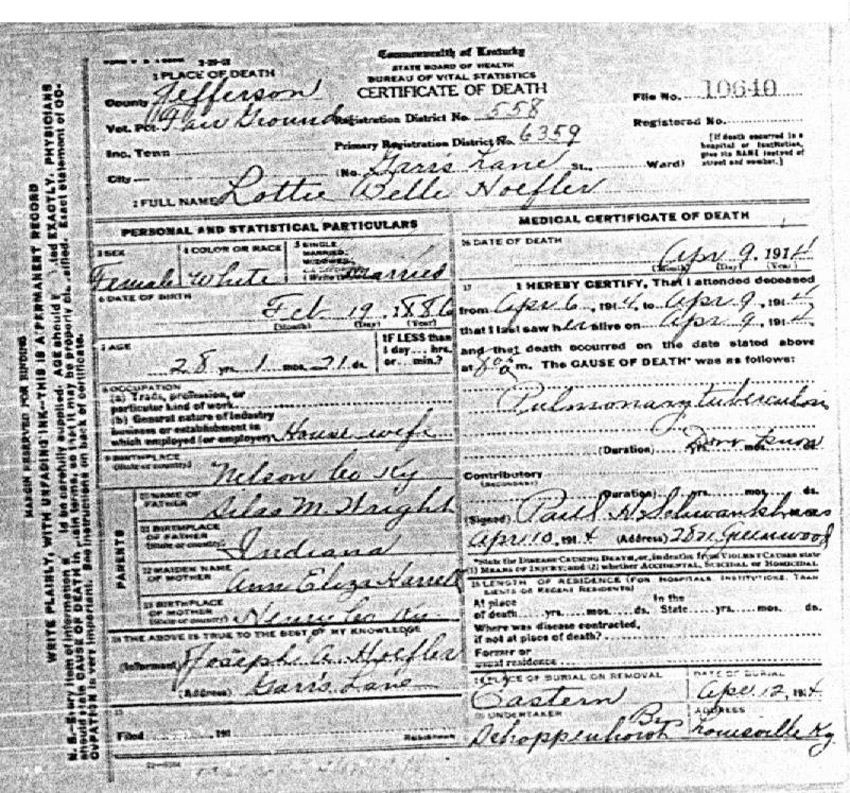 Commonwealth of Kentucky
STATE BOARD OF HEALTH
BUREAU OF VITAL STATISTICS
CERTIFICATE OF DEATH
1 PLACE OF DEATH
County Jefferson
Vot. Pct. Fair Grounds Registration District No. 558
File No. 10640
Inc. Town Primary Registration District No. 6359
Registered No.
City (No. Garr's Lane St., Ward)
[If death occurred in a
hospital or institution,
give its NAME instead of
street and number.]
2 FULL NAME Lottie Belle Hoefler
PERSONAL AND STATISTICAL PARTICULARS
3 SEX Female
4 COLOR OR RACE White
5 SINGLE
MARRIED,
WIDOWED,
Married
6 DATE OF BIRTH
Feb 19, 1886
(Month) (Day) (Year)
7 AGE
28 yrs. 1 mos. 21 ds.
IF LESS than
1 day... hrs.
or... min.?
8 OCCUPATION
(a) Trade, profession, or
particular kind of work
(b) General nature of industry
business or establishment in
which employed (or employer) House wife
9 BIRTHPLACE
(State or country) Nelson Co Ky
PARENTS
10 NAME OF
FATHER Silas M. Wright
11 BIRTHPLACE
OF FATHER
(State or country) Indiana
12 MAIDEN NAME
OF MOTHER Ann Eliza
13 BIRTHPLACE
OF MOTHER
(State or country) Henry Co Ky
14 THE ABOVE IS TRUE TO THE BEST OF MY KNOWLEDGE
(Informant) Joseph A. Hoefler
(Address) Garr's Lane
15
Filed 191 Registrar
MEDICAL CERTIFICATE OF DEATH
16 DATE OF DEATH
Apr 9, 1914
(Month) (Day) (Year)
17 I HEREBY CERTIFY, That I attended deceased
from Apr 6, 1914, to Apr 9, 1914,
that I last saw her alive on Apr 9, 1914,
and that death occurred on the date stated above
at m. The CAUSE OF DEATH* was as follows:
Pulmonary tuberculosis
(Duration) yrs. mos. ds.
Contributory
(SECONDARY)
(Duration) yrs. mos. ds.
(Signed) Paul
Apr 10, 1914 (Address) Greenwood
*State the DISEASE CAUSING DEATH, or, in deaths from VIOLENT CAUSES state
(1) MEANS OF INJURY; and (2) whether ACCIDENTAL, SUICIDAL or HOMICIDAL
18 LENGTH OF RESIDENCE (FOR HOSPITALS, INSTITUTIONS, TRANSIENTS OR RECENT RESIDENTS)
At place In the
of death yrs. mos. ds. State yrs. mos. ds.
Where was disease contracted,
if not at place of death?
Former or
usual residence
19 PLACE OF BURIAL OR REMOVAL
Eastern
DATE OF BURIAL
Apr 12, 1914
20 UNDERTAKER
Schoppenhorst
ADDRESS
Louisville Ky
MARGIN RESERVED FOR BINDING
WRITE PLAINLY, WITH UNFADING INK—THIS IS A PERMANENT RECORD